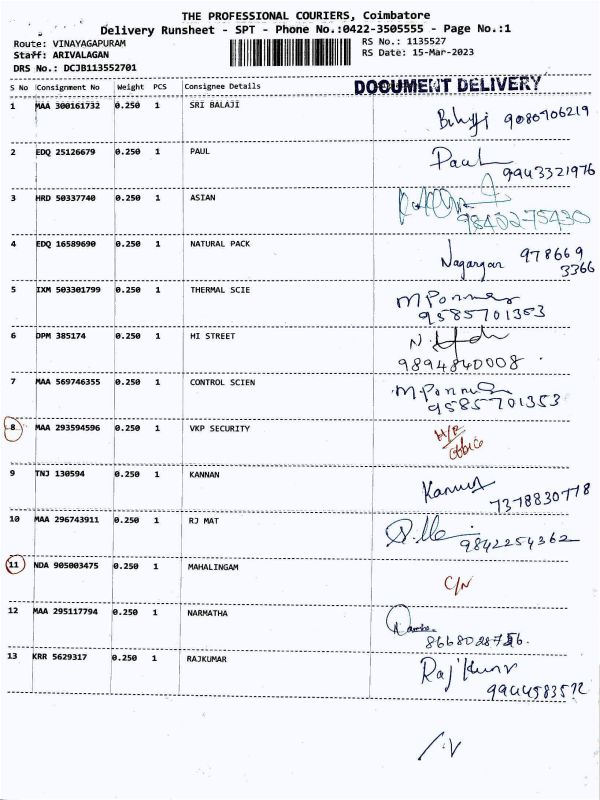 THE PROFESSIONAL COURIERS, Coimbatore
Delivery Runsheet - SPT - Phone No.:0422-3505555 - Page No.:1
Route: VINAYAGAPURAM RS No.: 1135527
Staff: ARIVALAGAN RS Date: 15-Mar-2023
DRS No.: DCJB113552701
DOCUMENT DELIVERY
S No Consignment No Weight PCS Consignee Details
1 MAA 300161732 0.250 1 SRI BALAJI
9080706219
2 EDQ 25126679 0.250 1 PAUL Paul
9943321976
3 HRD 50337740 0.250 1 ASIAN
9840275430
4 EDQ 16589690 0.250 1 NATURAL PACK 978669
3366
5 IXM 503301799 0.250 1 THERMAL SCIE
9585701353
6 DPM 385174 0.250 1 HI STREET
9894840008
7 MAA 569746355 0.250 1 CONTROL SCIEN
9585701353
8 MAA 293594596 0.250 1 VKP SECURITY
9 TNJ 130594 0.250 1 KANNAN
7378830778
10 MAA 296743911 0.250 1 RJ MAT
9842254362
11 NDA 905003475 0.250 1 MAHALINGAM C/N
12 MAA 295117794 0.250 1 NARMATHA
13 KRR 5629317 0.250 1 RAJKUMAR
9944583572